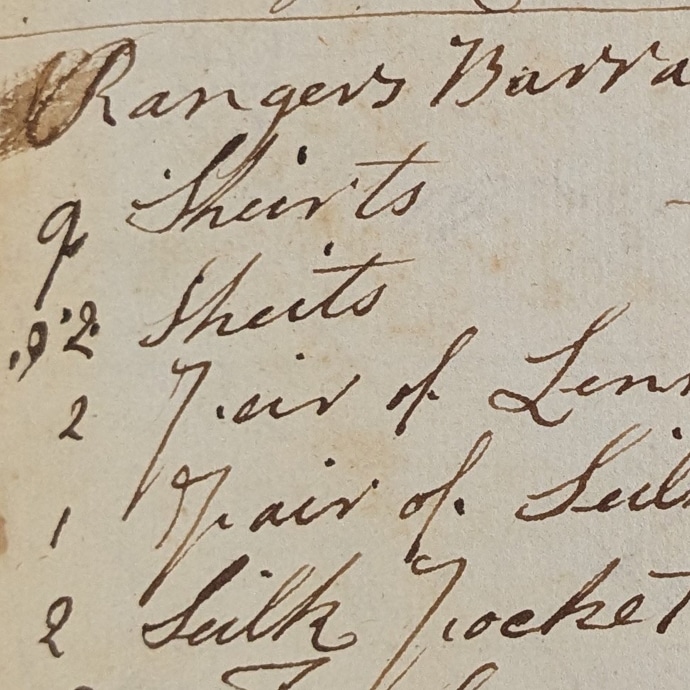 Rangers Barra
9 Sheirts
2 Sheits
2 Peair of Lenn
1 Pair of Seilk
2 Seilk Pocket